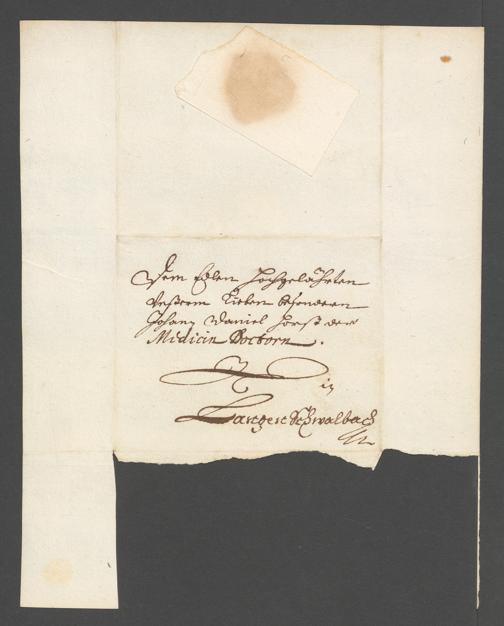 Dem Edlen Hochgelährten
Unßerm Lieben Besondern
Johann Daniel Horst der
Medicin Doctorn.
in
Langenschwalbach